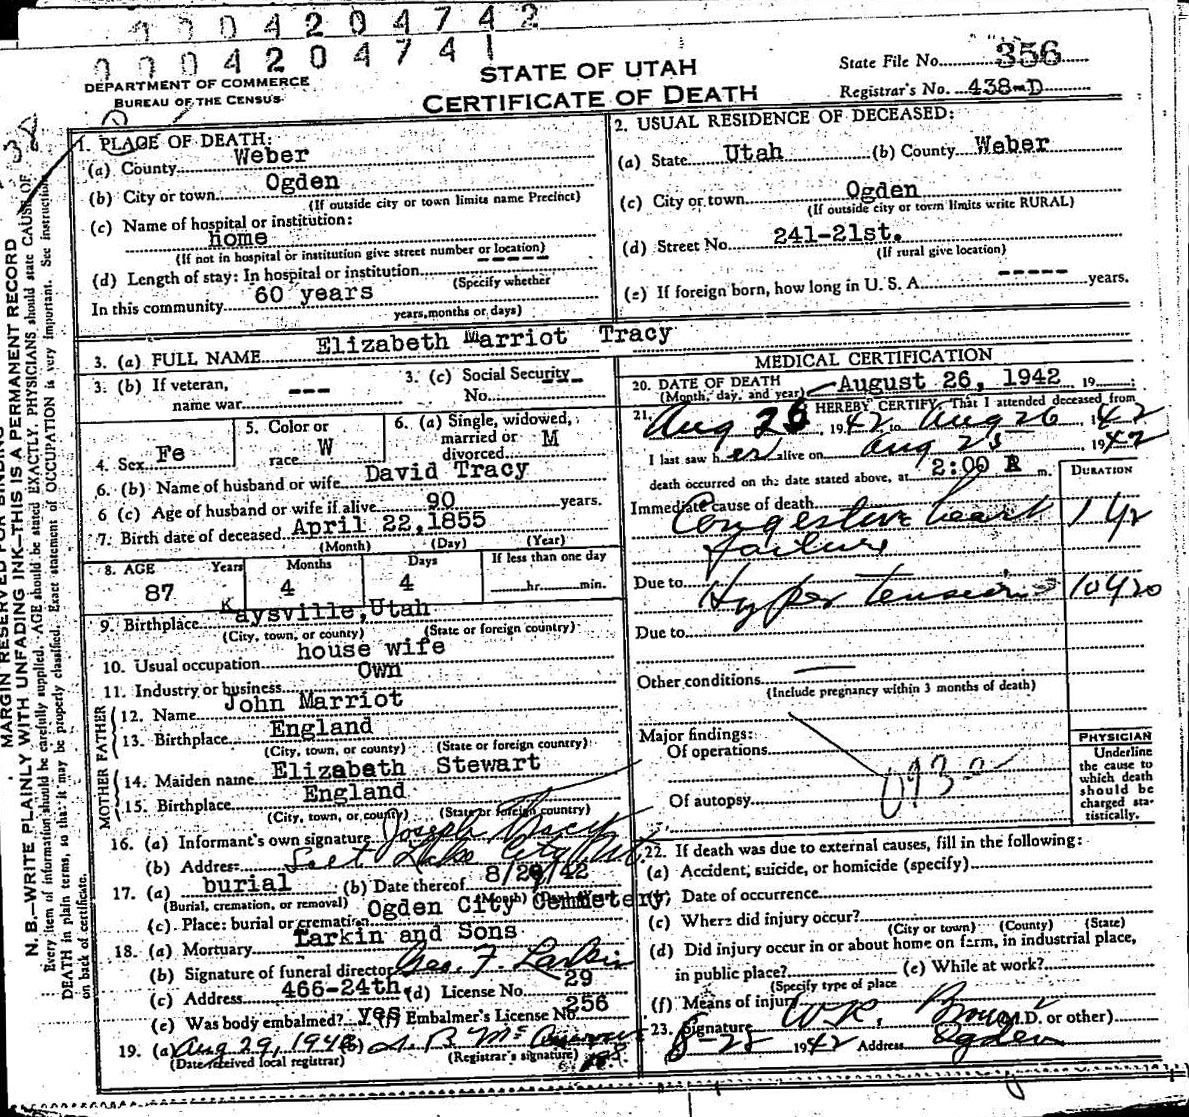 0004204742
0004204741
DEPARTMENT OF COMMERCE
BUREAU OF THE CENSUS
STATE OF UTAH
CERTIFICATE OF DEATH
State File No. 356
Registrar's No. 438-D
MARGIN RESERVED FOR BINDING
N. B.—WRITE PLAINLY WITH UNFADING INK—THIS IS A PERMANENT RECORD
Every item of information should be carefully supplied. AGE should be stated EXACTLY. PHYSICIANS should state CAUSE OF
DEATH in plain terms, so that it may be properly classified. Exact statement of OCCUPATION is very important. See instructions
on back of certificate.
1. PLACE OF DEATH:
(a) County Weber
(b) City or town Ogden
(If outside city or town limits name Precinct)
(c) Name of hospital or institution:
home
(If not in hospital or institution give street number or location)
(d) Length of stay: In hospital or institution -----
(Specify whether
In this community 60 years
years, months or days)
2. USUAL RESIDENCE OF DECEASED:
(a) State Utah (b) County Weber
(c) City or town Ogden
(If outside city or town limits write RURAL)
(d) Street No. 241-21st.
(If rural give location)
(e) If foreign born, how long in U. S. A. ----- years.
3. (a) FULL NAME Elizabeth Marriot Tracy
3. (b) If veteran,
name war ---
3. (c) Social Security
No. ---
4. Sex Fe
5. Color or
race W
6. (a) Single, widowed,
married or M
divorced
6. (b) Name of husband or wife David Tracy
6 (c) Age of husband or wife if alive 90 years.
7. Birth date of deceased April 22, 1855
(Month) (Day) (Year)
8. AGE Years Months Days If less than one day
87 4 4 hr. min.
9. Birthplace Kaysville, Utah
(City, town, or county) (State or foreign country)
10. Usual occupation house wife
11. Industry or business Own
FATHER
12. Name John Marriot
13. Birthplace England
(City, town, or county) (State or foreign country)
MOTHER
14. Maiden name Elizabeth Stewart
15. Birthplace England
(City, town, or county) (State or foreign country)
16. (a) Informant's own signature Joseph Tracy
(b) Address: Salt Lake City Ut.
17. (a) burial (b) Date thereof 8/29/42
(Burial, cremation, or removal) (Month)
(c) Place: burial or cremation Ogden City Cemetery
18. (a) Mortuary Larkin and Sons
(b) Signature of funeral director Geo. F. Larkin
(c) Address 466-24th (d) License No. 29
(e) Was body embalmed? yes (f) Embalmer's License No. 256
19. (a) Aug 29, 1942 (b)
(Date received local registrar) (Registrar's signature)
MEDICAL CERTIFICATION
20. DATE OF DEATH
(Month, day, and year) August 26, 1942 19
21. I HEREBY CERTIFY, That I attended deceased from
Aug 26, 1942 to Aug 26 1942
I last saw her alive on Aug 25 1942
death occurred on the date stated above, at 2:00 m.
DURATION
Immediate cause of death
Congestive heart
failure
Due to Hypertension
Due to
Other conditions
(Include pregnancy within 3 months of death)
Major findings:
Of operations
Of autopsy
PHYSICIAN
Underline
the cause to
which death
should be
charged sta-
tistically.
22. If death was due to external causes, fill in the following:
(a) Accident, suicide, or homicide (specify)
(b) Date of occurrence
(c) Where did injury occur?
(City or town) (County) (State)
(d) Did injury occur in or about home on farm, in industrial place,
in public place? (e) While at work?
(Specify type of place
(f) Means of injury
23. Signature W.R. Brown (M.D. or other)
8-28 1942 Address Ogden